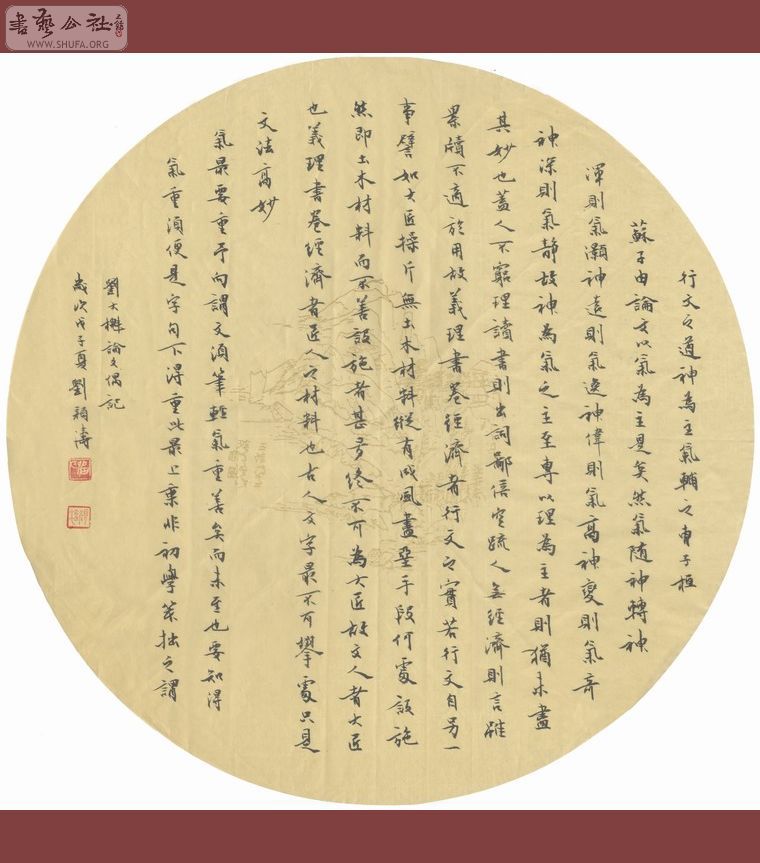 書藝公社
WWW.SHUFA.ORG
行文之道神為主氣輔之曹子桓
蘇子由論文以氣為主是矣然氣隨神轉神
渾則氣灝神遠則氣逸神偉則氣高神變則氣奇
神深則氣靜故神為氣之主至專以理為主者則猶未盡
其妙也蓋人不窮理讀書則出詞鄙倍空疏人無經濟則言雖
累牘不適於用故義理書卷經濟者行文之實若行文自另一
事譬如大匠操斤無土木材料縱有成風盡堊手段何處設施
然即土木材料而不善設施者甚多終不可為大匠故文人者大匠
也義理書卷經濟者匠人之材料也古人文字最不可攀處只是
文法高妙
氣最要重予向謂文須筆輕氣重善矣而未至也要知得
氣重須便是字句下得重此最上乘非初學笨拙之謂
劉大櫆論文偶記
歲次戊子夏劉穎濤